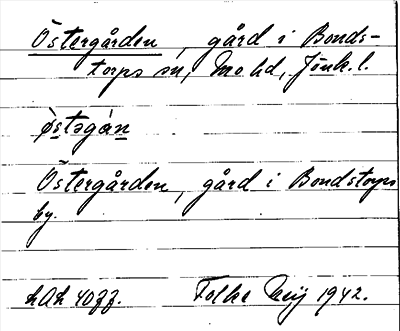 Östergården, gård i Bonds-
torps sn, Mo hd, Jönk. l.
Östergården, gård i Bondstorps
by.
Folke 1942.